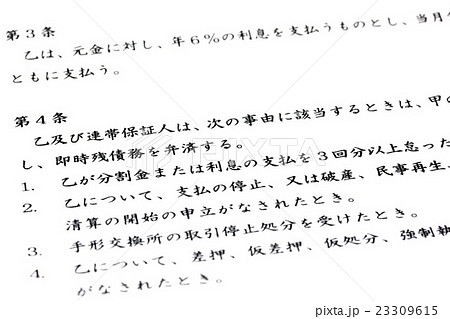 第３条
乙は、元金に対し、年６％の利息を支払うものとし、当月
ともに支払う。
第４条
乙及び連帯保証人は、次の事由に該当するときは、甲の
し、即時残債務を弁済する。
1. 乙が分割金または利息の支払を３回分以上怠った
2. 乙について、支払の停止、又は破産、民事再生、
清算の開始の申立がなされたとき。
3. 手形交換所の取引停止処分を受けたとき。
4. 乙について、差押、仮差押、仮処分、強制執
がなされたとき。
PIXTA
pixta.jp - 23309615